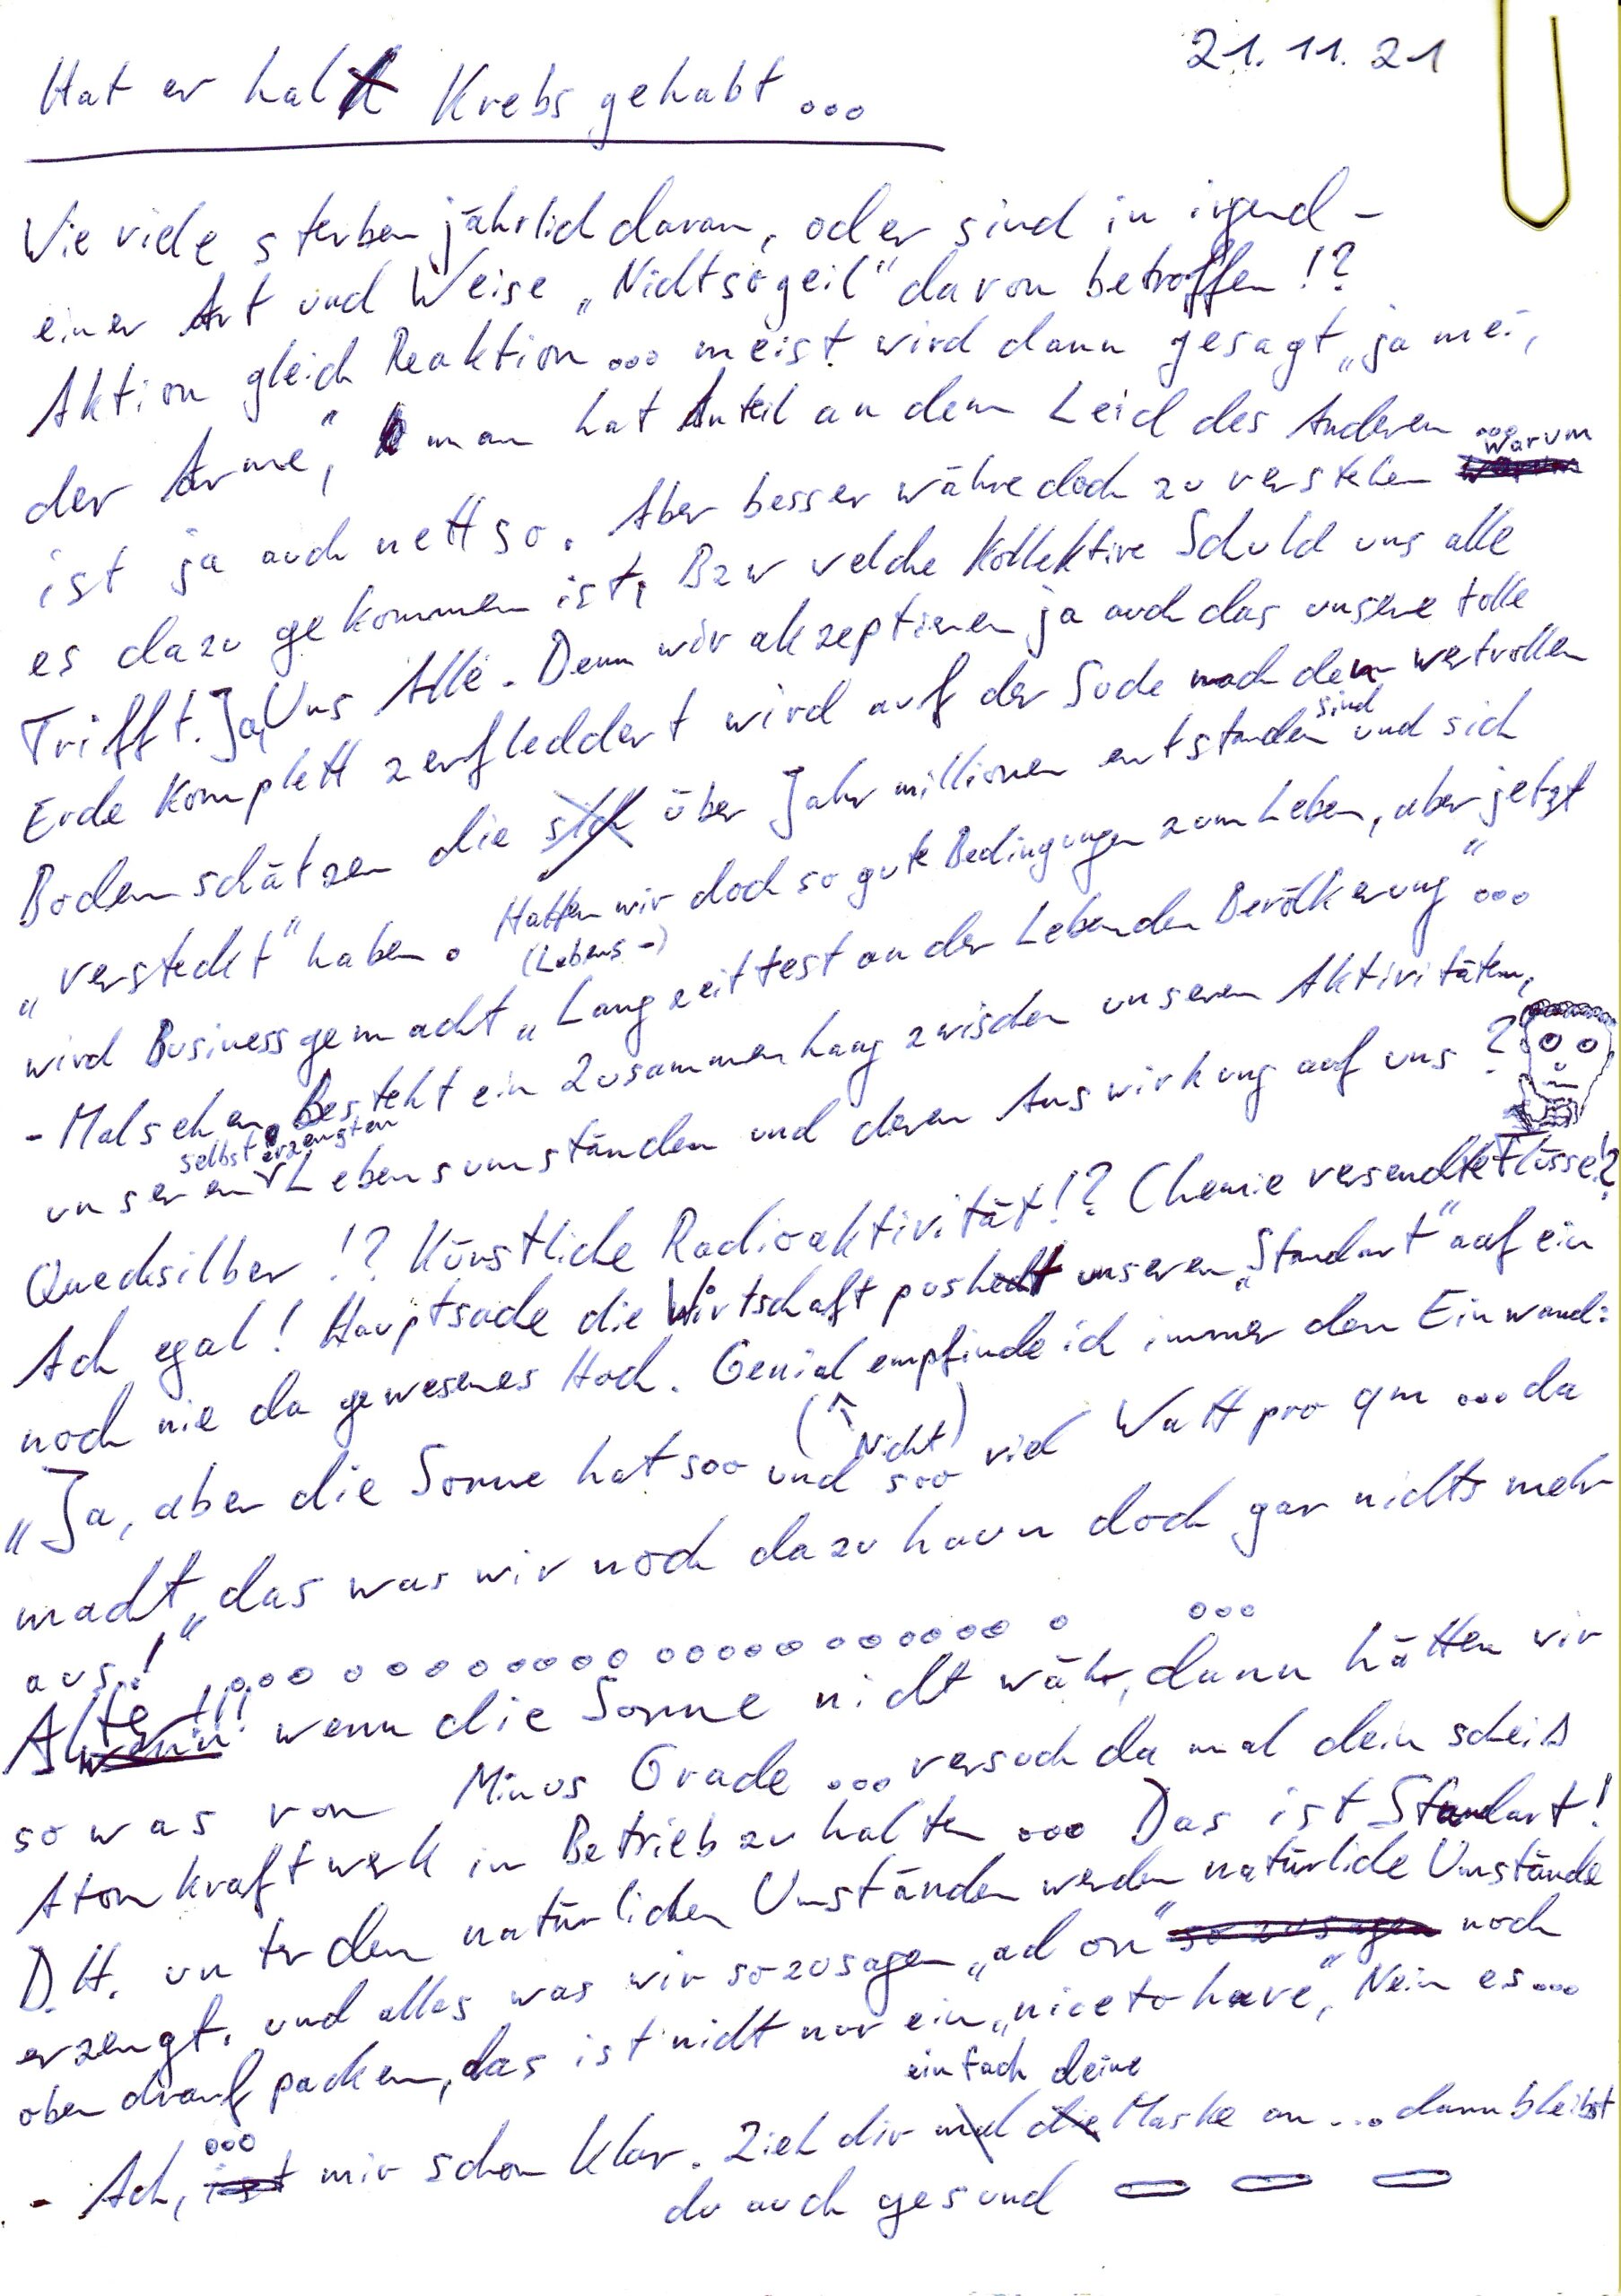 21.11.21
Hat er halt Krebs gehabt ...
Wie viele sterben jährlich daran, oder sind in irgend-
einer Art und Weise „Nichtsogeil" davon betroffen!?
Aktion gleich Reaktion ... meist wird dann gesagt „ja mei,
der Arme", man hat Anteil an dem Leid des Anderen ...
ist ja auch nett so. Aber besser währe doch zu verstehen warum
es dazu gekommen ist. Bzw welche Kollektive Schuld uns alle
Trifft. Ja, Uns Alle. Denn wir akzeptieren ja auch das unsere tolle
Erde Komplett zerfleddert wird auf der Suche nach den wertvollen
Bodenschätzen die sich über Jahrmillionen entstanden sind und sich
„versteckt" haben. Hatten wir doch so gute Bedingungen zum Leben, aber jetzt
(Lebens-)
wird Business gemacht „Langzeittest an der Lebenden Bevölkerung" ...
- Mal sehen. Besteht ein Zusammenhang zwischen unseren Aktivitäten,
selbst erzeugten
unseren Lebensumständen und deren Auswirkung auf uns?
Quecksilber!? Künstliche Radioaktivität!? Chemie versendte Flüsse!?
Ach egal! Hauptsache die Wirtschaft pusht unseren „Standart" auf ein
noch nie da gewesenes Hoch. Genial empfinde ich immer den Einwand:
(↑ Nicht)
„Ja, aber die Sonne hat soo und soo viel Watt pro qm ... da
macht „das was wir noch dazu haun doch gar nichts mehr
aus.! ... ...
Alte!!! wenn die Sonne nicht währ, dann hätten wir
sowas von Minus Grade ... versuch da mal dein scheiß
Atomkraftwerk in Betrieb zu halten ... Das ist Standart!
D.H. unter den natürlichen Umständen werden natürliche Umstände
erzeugt. und alles was wir sozusagen „ad on" sozusagen noch
oben drauf packen, das ist nicht nur ein „nice to have", Nein es ...
einfach deine
- Ach, ist ... mir schon klar. Zieh dir mal die Maske an ... dann bleibst
du auch gesund